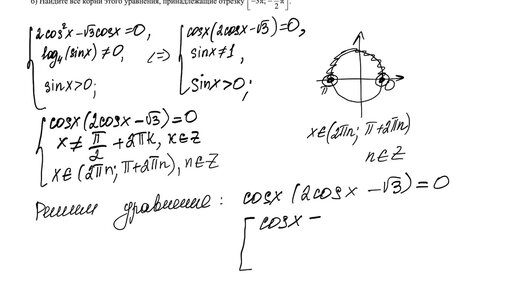 б) Найдите все корни этого уравнения, принадлежащие отрезку
2cos²x-√3cosx=0,
log₄(sinx)≠0,
sinx>0;
<=>
cosx(2cosx-√3)=0,
sinx≠1,
sinx>0;
π
0
cosx(2cosx-√3)=0
x≠π/2+2πk, k∈Z
x∈(2πn; π+2πn), n∈Z
x∈(2πn; π+2πn)
n∈Z
Решим уравнение: cosx(2cosx-√3)=0
cosx =